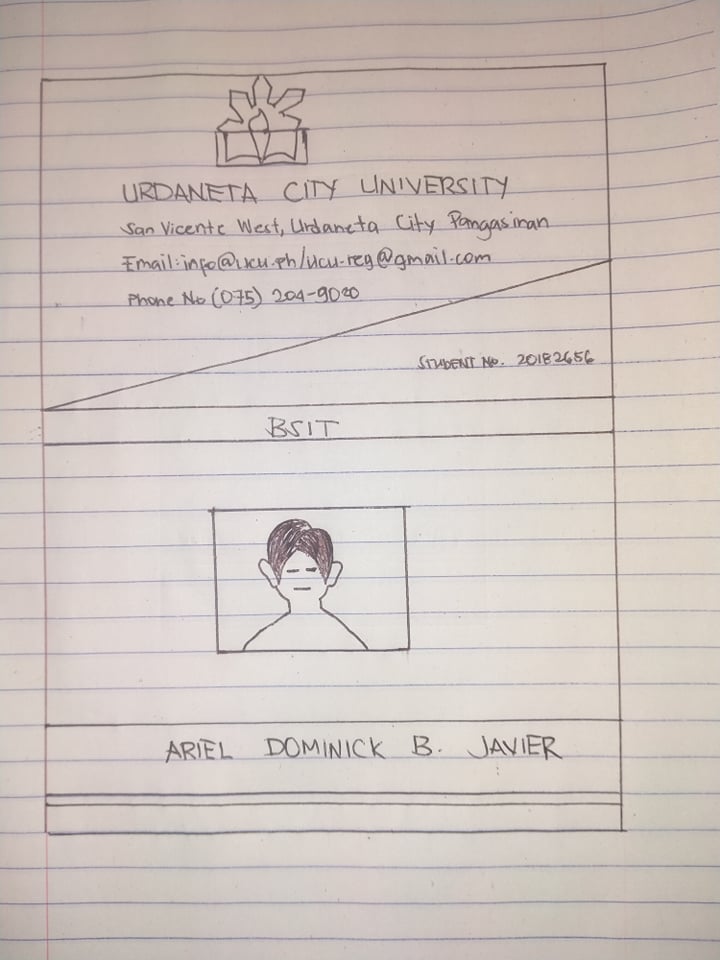 URDANETA CITY UNIVERSITY
San Vicente West, Urdaneta City Pangasinan
Email:info@ucu.ph/ucu-reg@gmail.com
Phone No (075) 204-9020
STUDENT No. 20182656
BSIT
ARIEL DOMINICK B. JAVIER